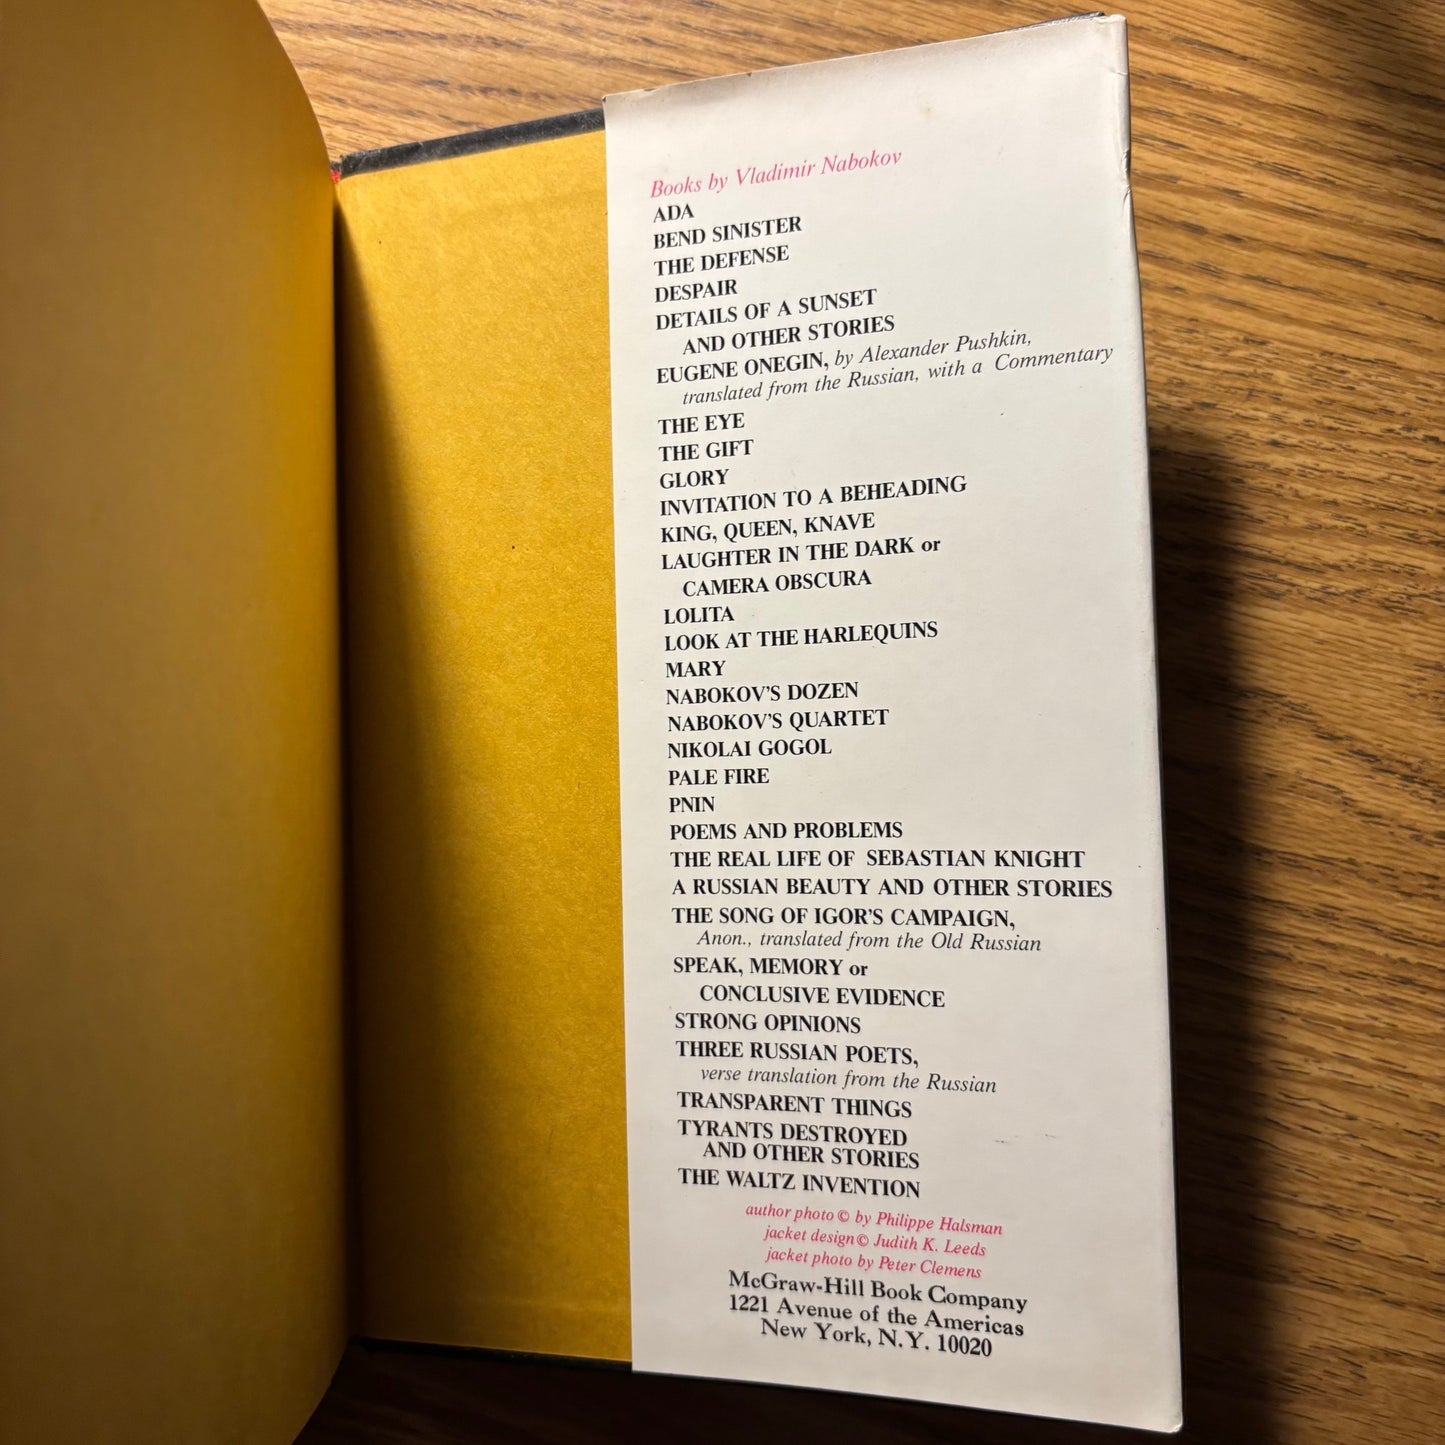 Books by Vladimir Nabokov
ADA
BEND SINISTER
THE DEFENSE
DESPAIR
DETAILS OF A SUNSET
AND OTHER STORIES
EUGENE ONEGIN, by Alexander Pushkin,
translated from the Russian, with a Commentary
THE EYE
THE GIFT
GLORY
INVITATION TO A BEHEADING
KING, QUEEN, KNAVE
LAUGHTER IN THE DARK or
CAMERA OBSCURA
LOLITA
LOOK AT THE HARLEQUINS
MARY
NABOKOV'S DOZEN
NABOKOV'S QUARTET
NIKOLAI GOGOL
PALE FIRE
PNIN
POEMS AND PROBLEMS
THE REAL LIFE OF SEBASTIAN KNIGHT
A RUSSIAN BEAUTY AND OTHER STORIES
THE SONG OF IGOR'S CAMPAIGN,
Anon., translated from the Old Russian
SPEAK, MEMORY or
CONCLUSIVE EVIDENCE
STRONG OPINIONS
THREE RUSSIAN POETS,
verse translation from the Russian
TRANSPARENT THINGS
TYRANTS DESTROYED
AND OTHER STORIES
THE WALTZ INVENTION
author photo © by Philippe Halsman
jacket design © Judith K. Leeds
jacket photo by Peter Clemens
McGraw-Hill Book Company
1221 Avenue of the Americas
New York, N.Y. 10020